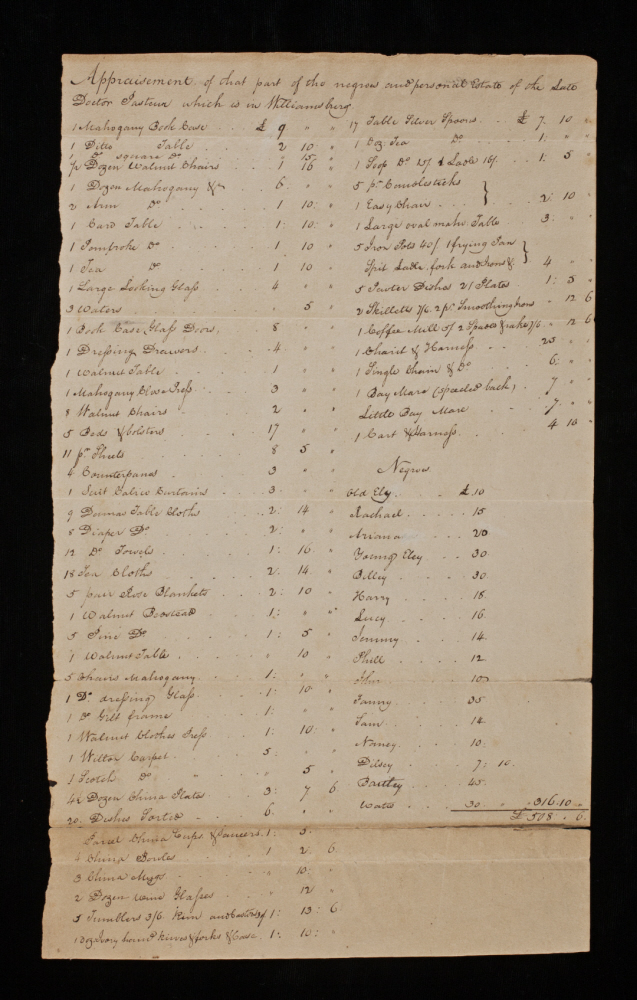 Appraisement of that part of the negroes and personal Estate of the Late
Doctor Pasteur which is in Williamsburg
1 Mahogany Book Case £ 9 " "
1 Ditto Table 2 10 "
1 Do square Do " 15 "
1/2 Dozen Walnut Chairs 1 16 "
1 Dozen Mahogany Do 6 " "
2 Arm Do 1 10 "
1 Card Table 1 10 "
1 Pembroke Do 1 10 "
1 Tea Do 1 10 "
1 Large Looking Glass 4 " "
3 Waters " 5 "
1 Book Case Glass Doors 8 " "
1 Dressing Drawers 4 " "
1 Walnut Table 1 " "
1 Mahogany Close Press 3 " "
8 Walnut Chairs 2 " "
5 Beds & bolsters 17 " "
11 pr Sheets 8 5 "
4 Counterpanes 3 " "
1 Suit Calico Curtains 3 " "
9 Damas Table Cloths 2 14 "
8 Diaper Do 2 " "
12 Do Towels 1 16 "
18 Tea Cloths 2 14 "
5 pair Rose Blankets 2 10 "
1 Walnut Bedstead 1 " "
5 Pine Do 1 5 "
1 Walnut Table " 10 "
5 Chairs Mahogany 1 " "
1 Do dressing Glass 1 10 "
1 Do Gilt frame 1 " "
1 Walnut Clothes Press 1 10 "
1 Wilton Carpet 5 " "
1 Scotch Do " 5 "
4 1/2 Dozen China Plates 3 7 6
20 Dishes 6 " "
Parcel China Cups & Saucers 1 5
4 China Bowles 1 2 6
3 China Mugs " 10 "
2 Dozen wine Glasses " 12 "
5 Tumblers 3/6 1 13 6
1 doz Ivory knives & forks & Case 1 10 "
17 Table Silver Spoons £ 7 10 "
1 Doz Tea Do 1 " "
1 Soop Do 15/ 1 Ladle 10/ 1 5 "
5 pr Candlesticks
1 Easy Chair 2 10 "
1 Large oval mahy Table 3 " "
5 Iron Pots 40/ 1 frying Pan
Spit Ladle, fork andirons & 4 " "
5 Pewter Dishes 21 Plates 1 5 "
2 Skilletts 7/6 2 pr Smoothing Irons " 12 6
1 Coffee Mill 5/ 2 Spades & rake 7/6 " 12 6
1 Chariot & Harness 25 " "
1 Single Chair & Do 6 " "
1 Bay Mare 7 " "
Little Bay Mare 7 " "
1 Cart & Harness 4 10 "
Negroes
Old Eley £ 10
Rachael 15
Ariana 20
Young Eley 30
Billey 30
Harry 18
Lucy 16
Jemmy 14
Phill 12
John 10
Fanny 35
Sam 14
Nancy 10
Dilsey 7 10
Bartley 45
Water 30 " 316.10 "
£ 518 " 6